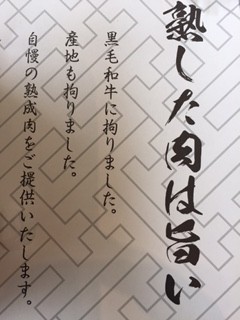 熟した肉は旨い
黒毛和牛に拘りました。
産地も拘りました。
自慢の熟成肉をご提供いたします。